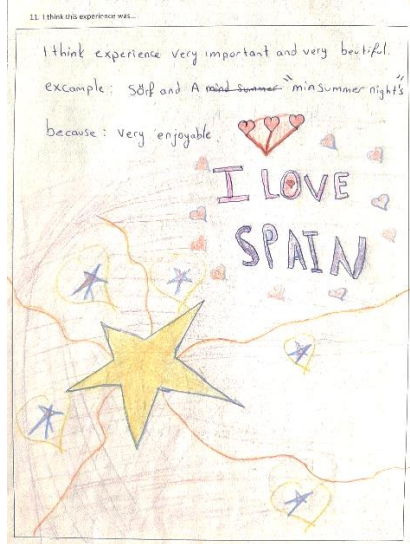 11. I think this experience was...
I think experience very important and very beutiful.
excample: Sörf and A mind summer "minsummer night's"
because: very enjoyable.
I LOVE
SPAIN